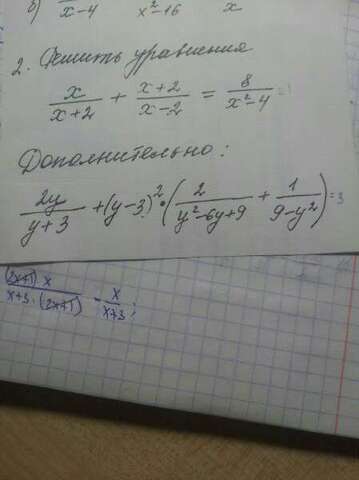 б) x-4 x²-16 x
2. Решить уравнения
x/(x+2) + (x+2)/(x-2) = 8/(x²-4) =1
Дополнительно:
2y/(y+3) + (y-3)²·(2/(y²-6y+9) + 1/(9-y²)) =3
(2x+1) x/(x+3·(2x+1)) = x/(x+3);